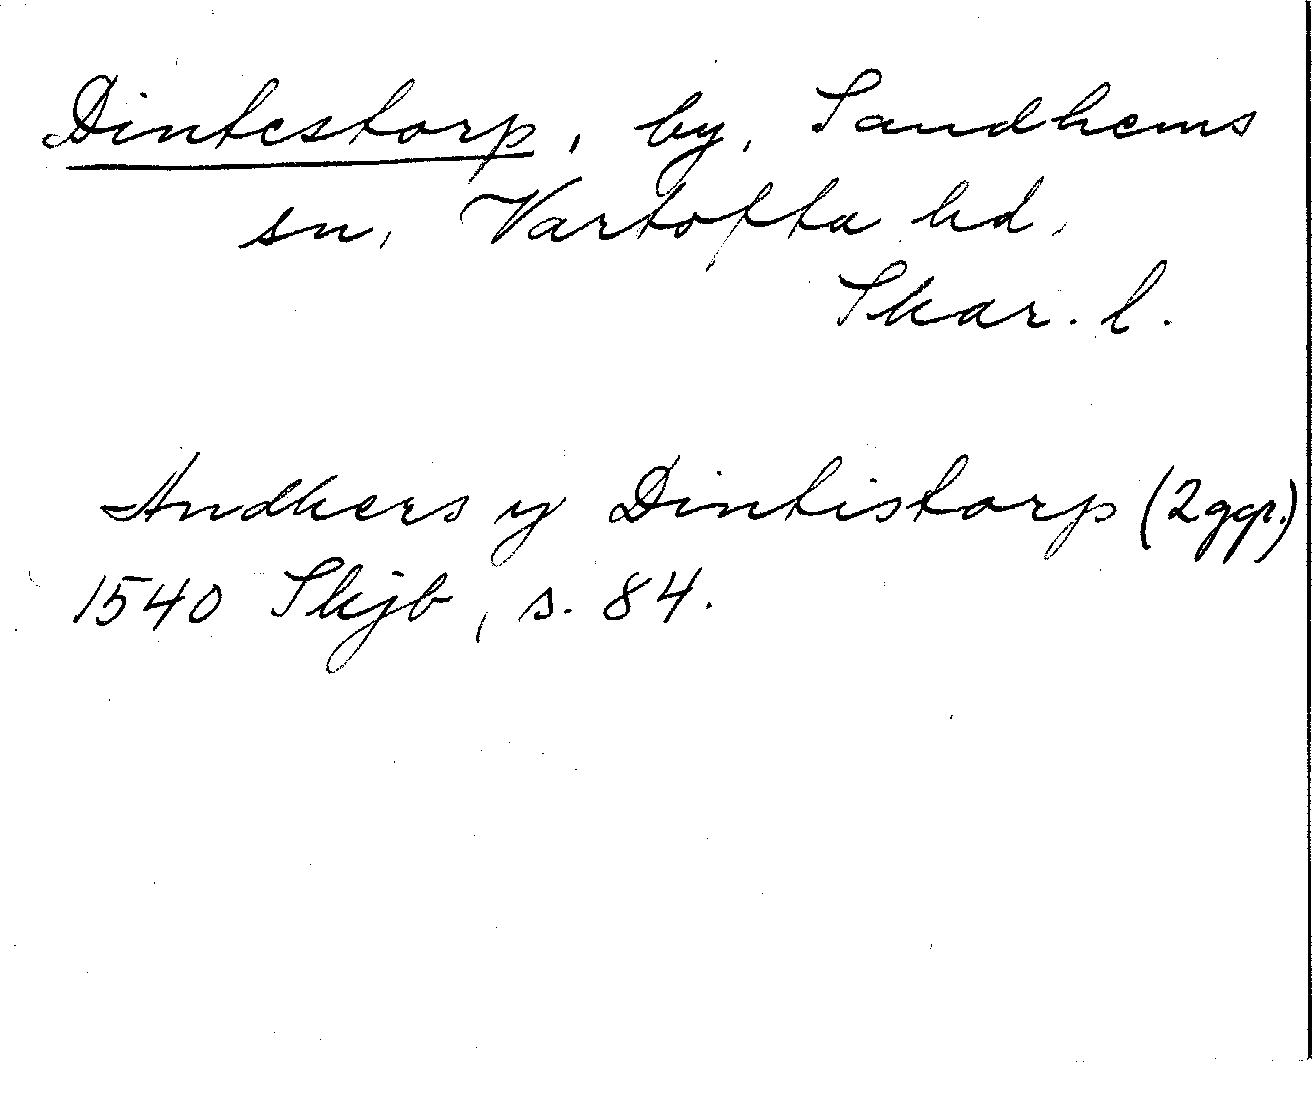 Dintestorp, by, Sandhems
sn, Vartofta hd,
Skar. l.
Andhers y Dintistorp (2 ggr.)
1540 Skjb, s. 84.